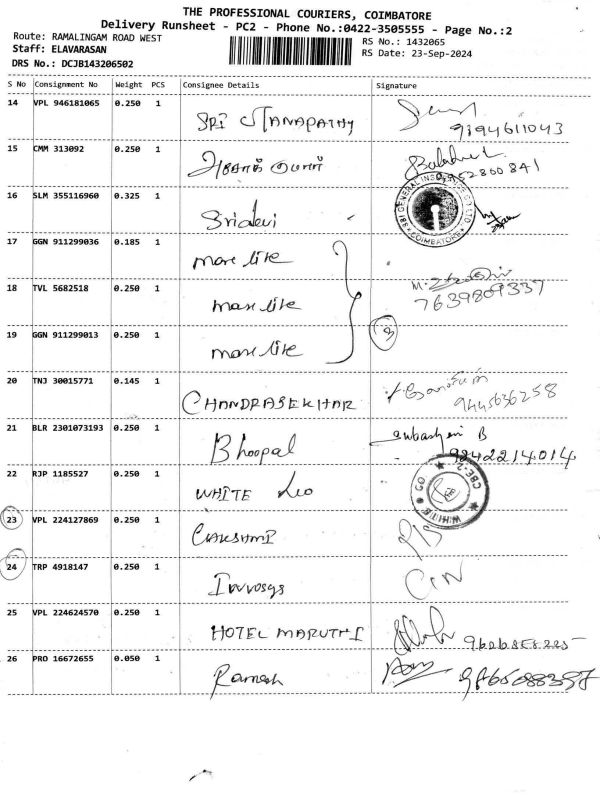 THE PROFESSIONAL COURIERS, COIMBATORE
Delivery Runsheet - PC2 - Phone No.:0422-3505555 - Page No.:2
Route: RAMALINGAM ROAD WEST
RS No.: 1432065
Staff: ELAVARASAN
RS Date: 23-Sep-2024
DRS No.: DCJB143206502
S No Consignment No Weight PCS Consignee Details Signature
14 VPL 946181065 0.250 1 SRI GANAPATHY 9194611043
15 CMM 313092 0.250 1 அசோக் குமார்
16 SLM 355116960 0.325 1 Sridevi
SBI GENERAL INSURANCE CO LTD
COIMBATORE
17 GGN 911299036 0.185 1 more like
18 TVL 5682518 0.250 1 more like 7639809337
19 GGN 911299013 0.250 1 more like 3
20 TNJ 30015771 0.145 1 CHANDRASEKHAR 9445636258
21 BLR 2301073193 0.250 1 Bhoopal B 9842214014
22 RJP 1185527 0.250 1 WHITE Leo
WHITE CBE-2
23 VPL 224127869 0.250 1 LAKSHMI
24 TRP 4918147 0.250 1
25 VPL 224624570 0.250 1 HOTEL MARUTHI
26 PRO 16672655 0.050 1 Ramesh